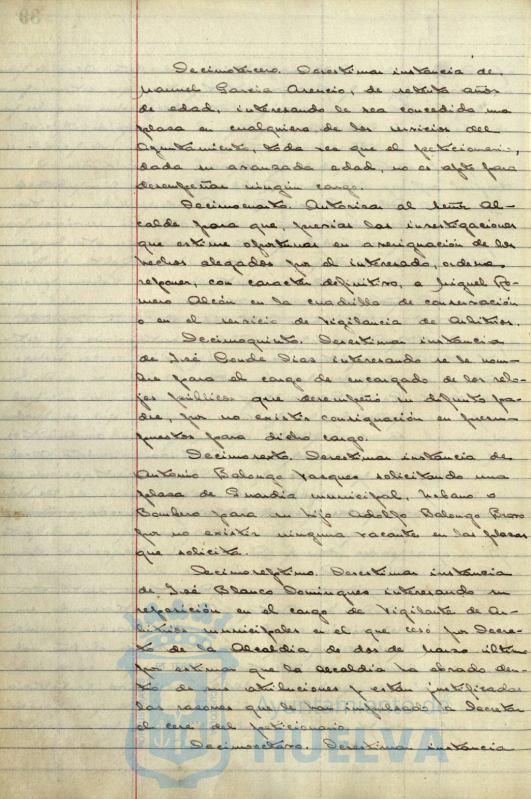 Decimotercero. Desestimar instancia de
Manuel García Asencio, de setenta años
de edad, interesando le sea concedida una
plaza en cualquiera de los servicios del
Ayuntamiento, toda vez que el peticionario,
dada su avanzada edad, no es apto para
desempeñar ningún cargo.
Decimocuarto. Autorizar al Señor Al-
calde para que, previas las investigaciones
que estime oportunas en averiguación de los
hechos alegados por el interesado, ordene
reponer, con carácter definitivo, a Miguel Ro-
mero Alcón en la cuadrilla de conservación
o en el servicio de Vigilancia de Arbitrios.
Decimoquinto. Desestimar instancia
de José Conde Díaz interesando se le nom-
bre para el cargo de encargado de los relo-
jes públicos que desempeñó su difunto pa-
dre, por no existir consignación en presu-
puestos para dicho cargo.
Decimosexto. Desestimar instancia de
Antonio Balongo Vasques solicitando una
plaza de Guardia municipal, Urbano o
Bombero para su hijo Adolfo Balongo Bravo
por no existir ninguna vacante en las plazas
que solicita.
Decimoséptimo. Desestimar instancia
de José Blanco Domingues interesando su
reposición en el cargo de Vigilante de Ar-
bitrios municipales en el que cesó por Decre-
to de la Alcaldía de dos de Marzo último
por estimar que la alcaldía ha obrado den-
tro de sus atribuciones y están justificadas
las razones que le han impulsado a Decretar
el cese del peticionario.
Decimoctavo. Desestimar instancia
HUELVA